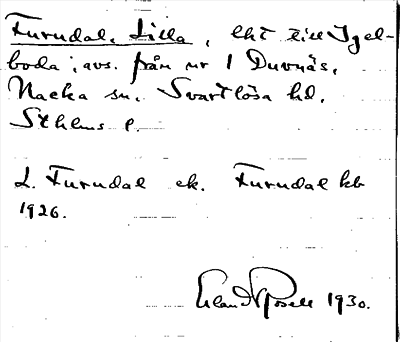 Furudal, Lilla, lht till Igel-
boda, avs. från nr 1 Duvnäs,
Nacka sn. Svartlösa hd.
Sthlms l.
L. Furudal ek. Furudal kb
1926.
Erland Rosell 1930.